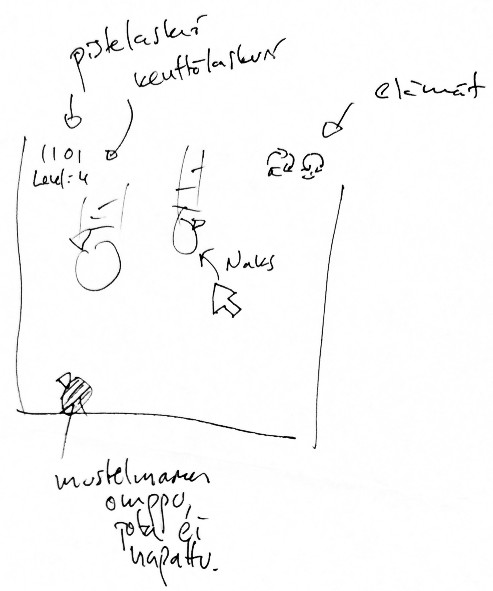 pistelaskuri
kenttälaskuri
elämät
1101
Level: 4
Naks
mustelmainen
omppu,
jota ei
napattu.